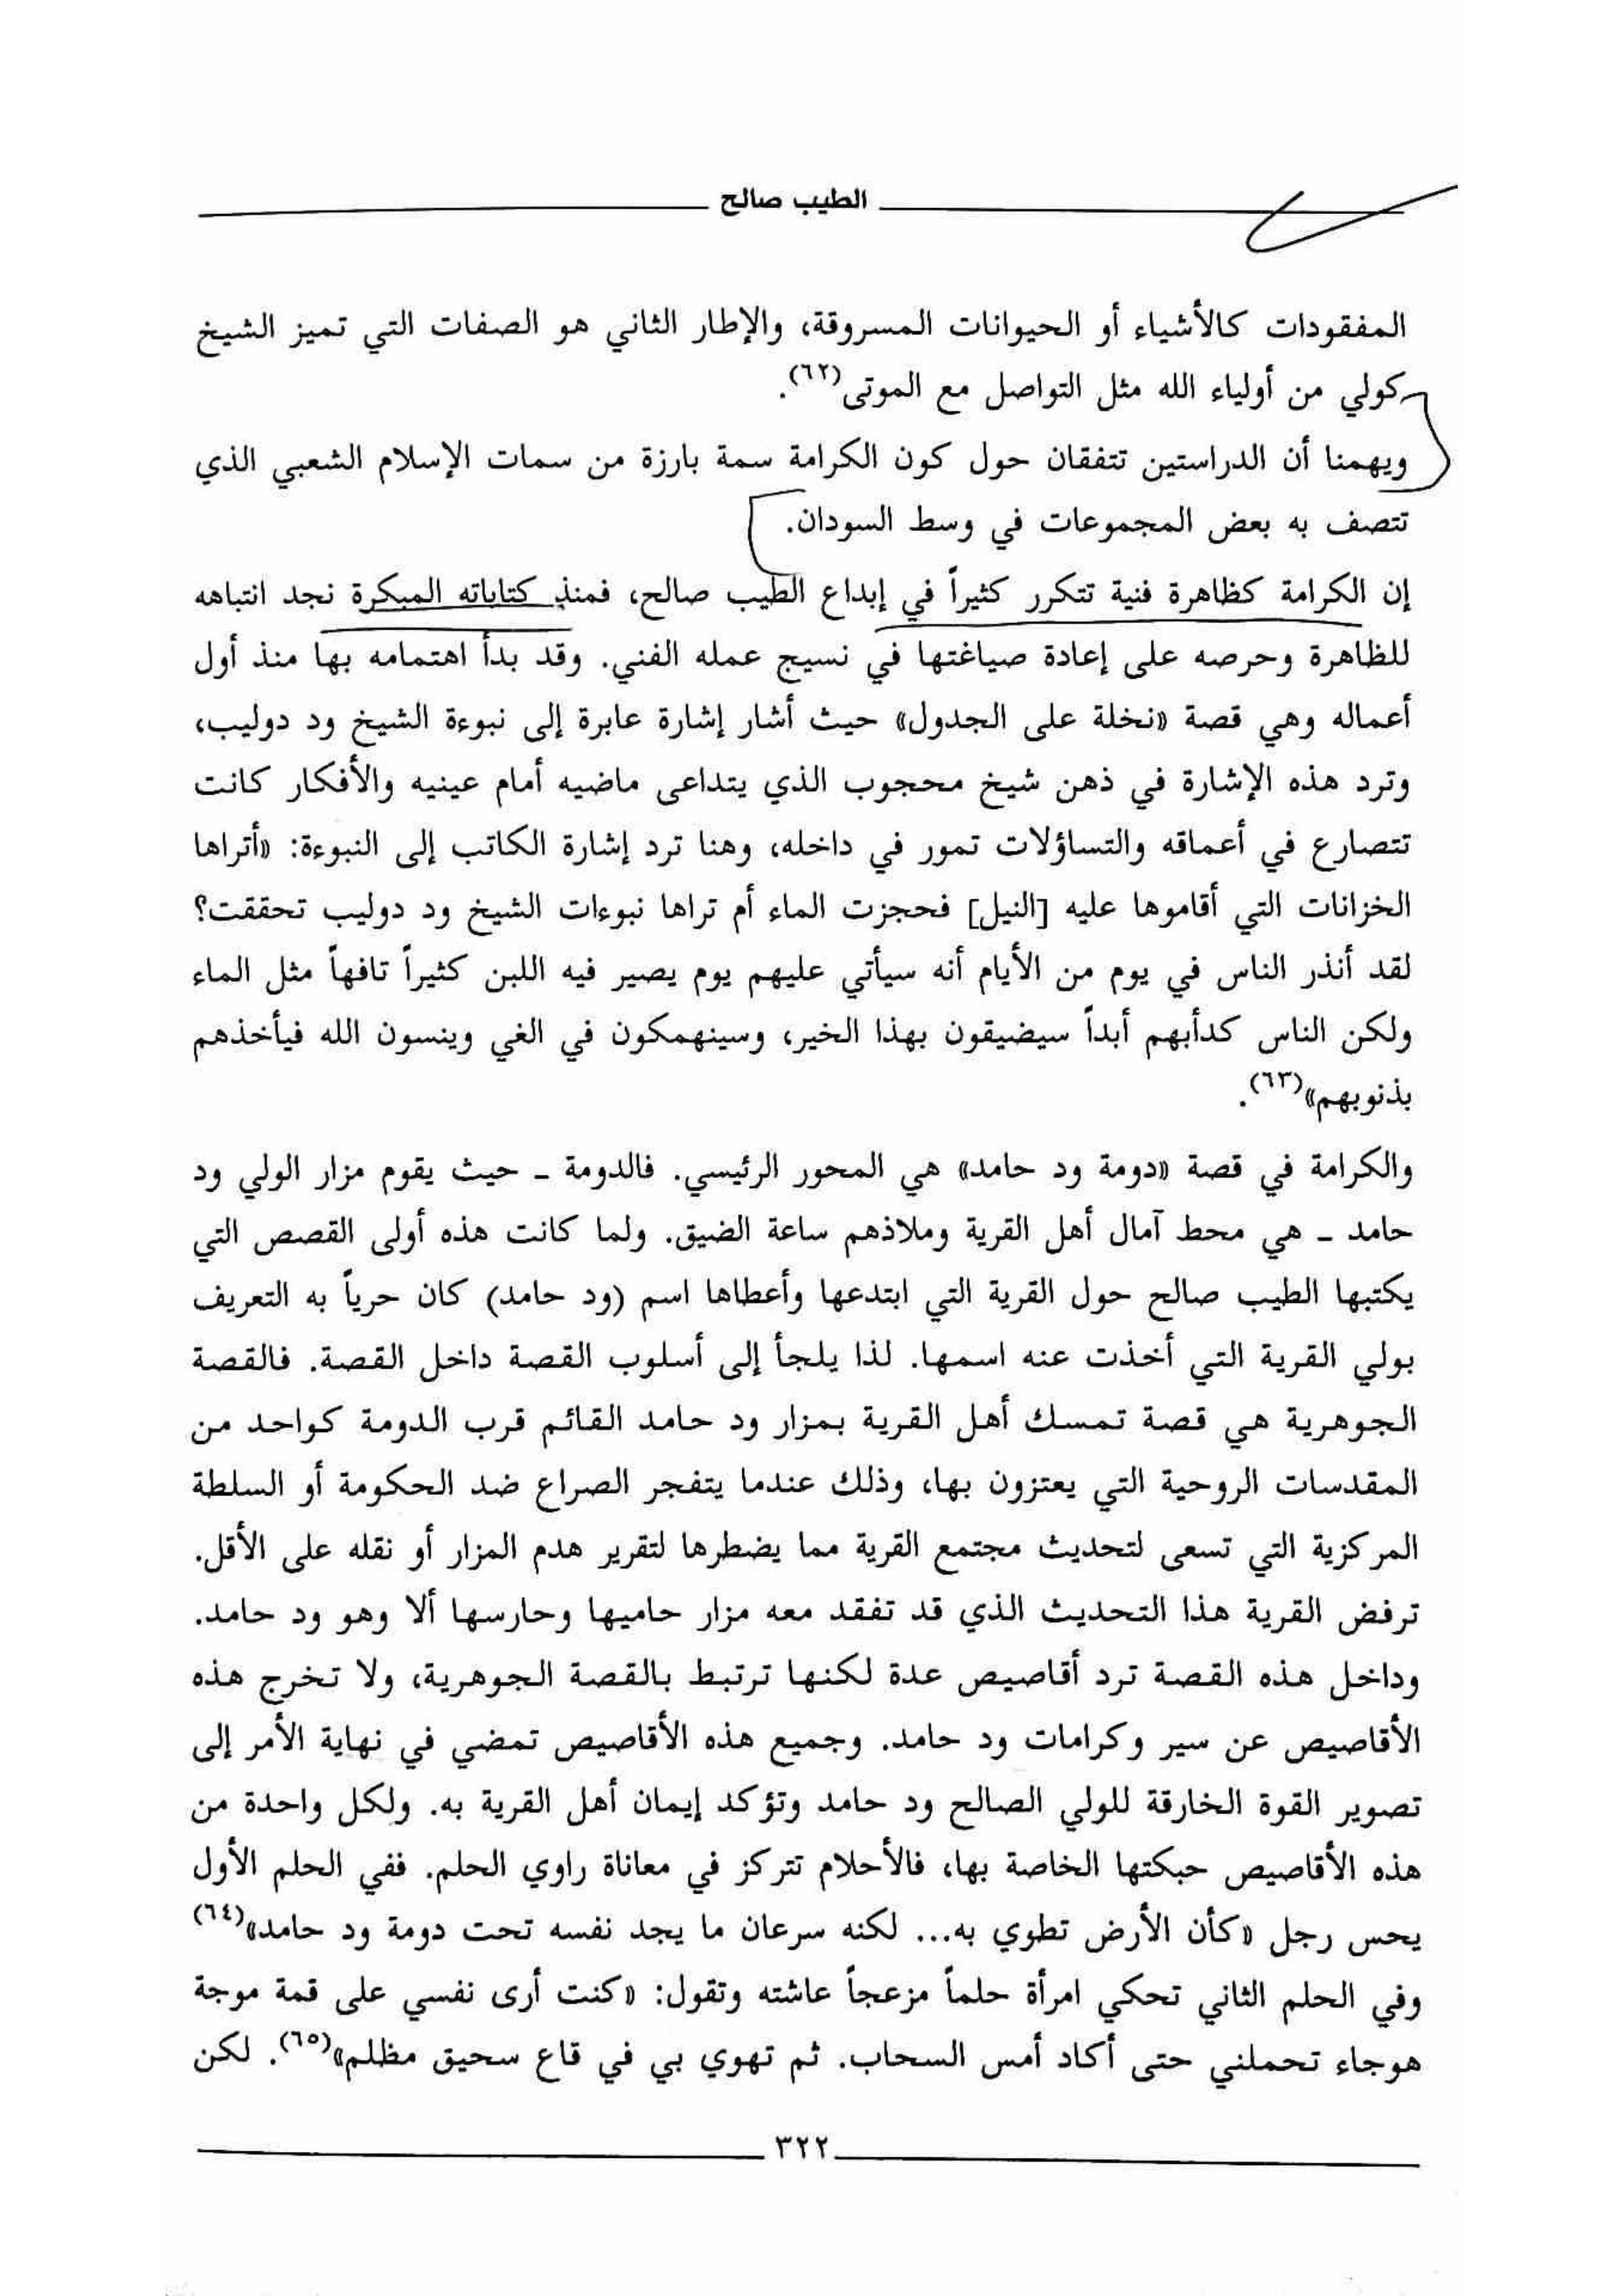 الطيب صالح
المفقودات كالأشياء أو الحيوانات المسروقة، والإطار الثاني هو الصفات التي تميز الشيخ
كولي من أولياء الله مثل التواصل مع الموتى(٦٢).
ويهمنا أن الدراستين تتفقان حول كون الكرامة سمة بارزة من سمات الإسلام الشعبي الذي
تتصف به بعض المجموعات في وسط السودان.
إن الكرامة كظاهرة فنية تتكرر كثيراً في إبداع الطيب صالح، فمنذ كتاباته المبكرة نجد انتباهه
للظاهرة وحرصه على إعادة صياغتها في نسيج عمله الفني. وقد بدأ اهتمامه بها منذ أول
أعماله وهي قصة «نخلة على الجدول» حيث أشار إشارة عابرة إلى نبوءة الشيخ ود دوليب،
وترد هذه الإشارة في ذهن شيخ محجوب الذي يتداعى ماضيه أمام عينيه والأفكار كانت
تتصارع في أعماقه والتساؤلات تمور في داخله، وهنا ترد إشارة الكاتب إلى النبوءة: «أتراها
الخزانات التي أقاموها عليه [النيل] فحجزت الماء أم تراها نبوءات الشيخ ود دوليب تحققت؟
لقد أنذر الناس في يوم من الأيام أنه سيأتي عليهم يوم يصير فيه اللبن كثيراً تافهاً مثل الماء
ولكن الناس كدأبهم أبداً سيضيقون بهذا الخير، وسينهمكون في الغي وينسون الله فيأخذهم
بذنوبهم»(٦٣).
والكرامة في قصة «دومة ود حامد» هي المحور الرئيسي. فالدومة ـ حيث يقوم مزار الولي ود
حامد ـ هي محط آمال أهل القرية وملاذهم ساعة الضيق. ولما كانت هذه أولى القصص التي
يكتبها الطيب صالح حول القرية التي ابتدعها وأعطاها اسم (ود حامد) كان حرياً به التعريف
بولي القرية التي أخذت عنه اسمها. لذا يلجأ إلى أسلوب القصة داخل القصة. فالقصة
الجوهرية هي قصة تمسك أهل القرية بمزار ود حامد القائم قرب الدومة كواحد من
المقدسات الروحية التي يعتزون بها، وذلك عندما يتفجر الصراع ضد الحكومة أو السلطة
المركزية التي تسعى لتحديث مجتمع القرية مما يضطرها لتقرير هدم المزار أو نقله على الأقل.
ترفض القرية هذا التحديث الذي قد تفقد معه مزار حاميها وحارسها ألا وهو ود حامد.
وداخل هذه القصة ترد أقاصيص عدة لكنها ترتبط بالقصة الجوهرية، ولا تخرج هذه
الأقاصيص عن سير وكرامات ود حامد. وجميع هذه الأقاصيص تمضي في نهاية الأمر إلى
تصوير القوة الخارقة للولي الصالح ود حامد وتؤكد إيمان أهل القرية به. ولكل واحدة من
هذه الأقاصيص حبكتها الخاصة بها، فالأحلام تتركز في معاناة راوي الحلم. ففي الحلم الأول
يحس رجل «كأن الأرض تطوي به... لكنه سرعان ما يجد نفسه تحت دومة ود حامد»(٦٤)
وفي الحلم الثاني تحكي امرأة حلماً مزعجاً عاشته وتقول: «كنت أرى نفسي على قمة موجة
هوجاء تحملني حتى أكاد أمس السحاب. ثم تهوي بي في قاع سحيق مظلم»(٦٥). لكن
٣٢٢